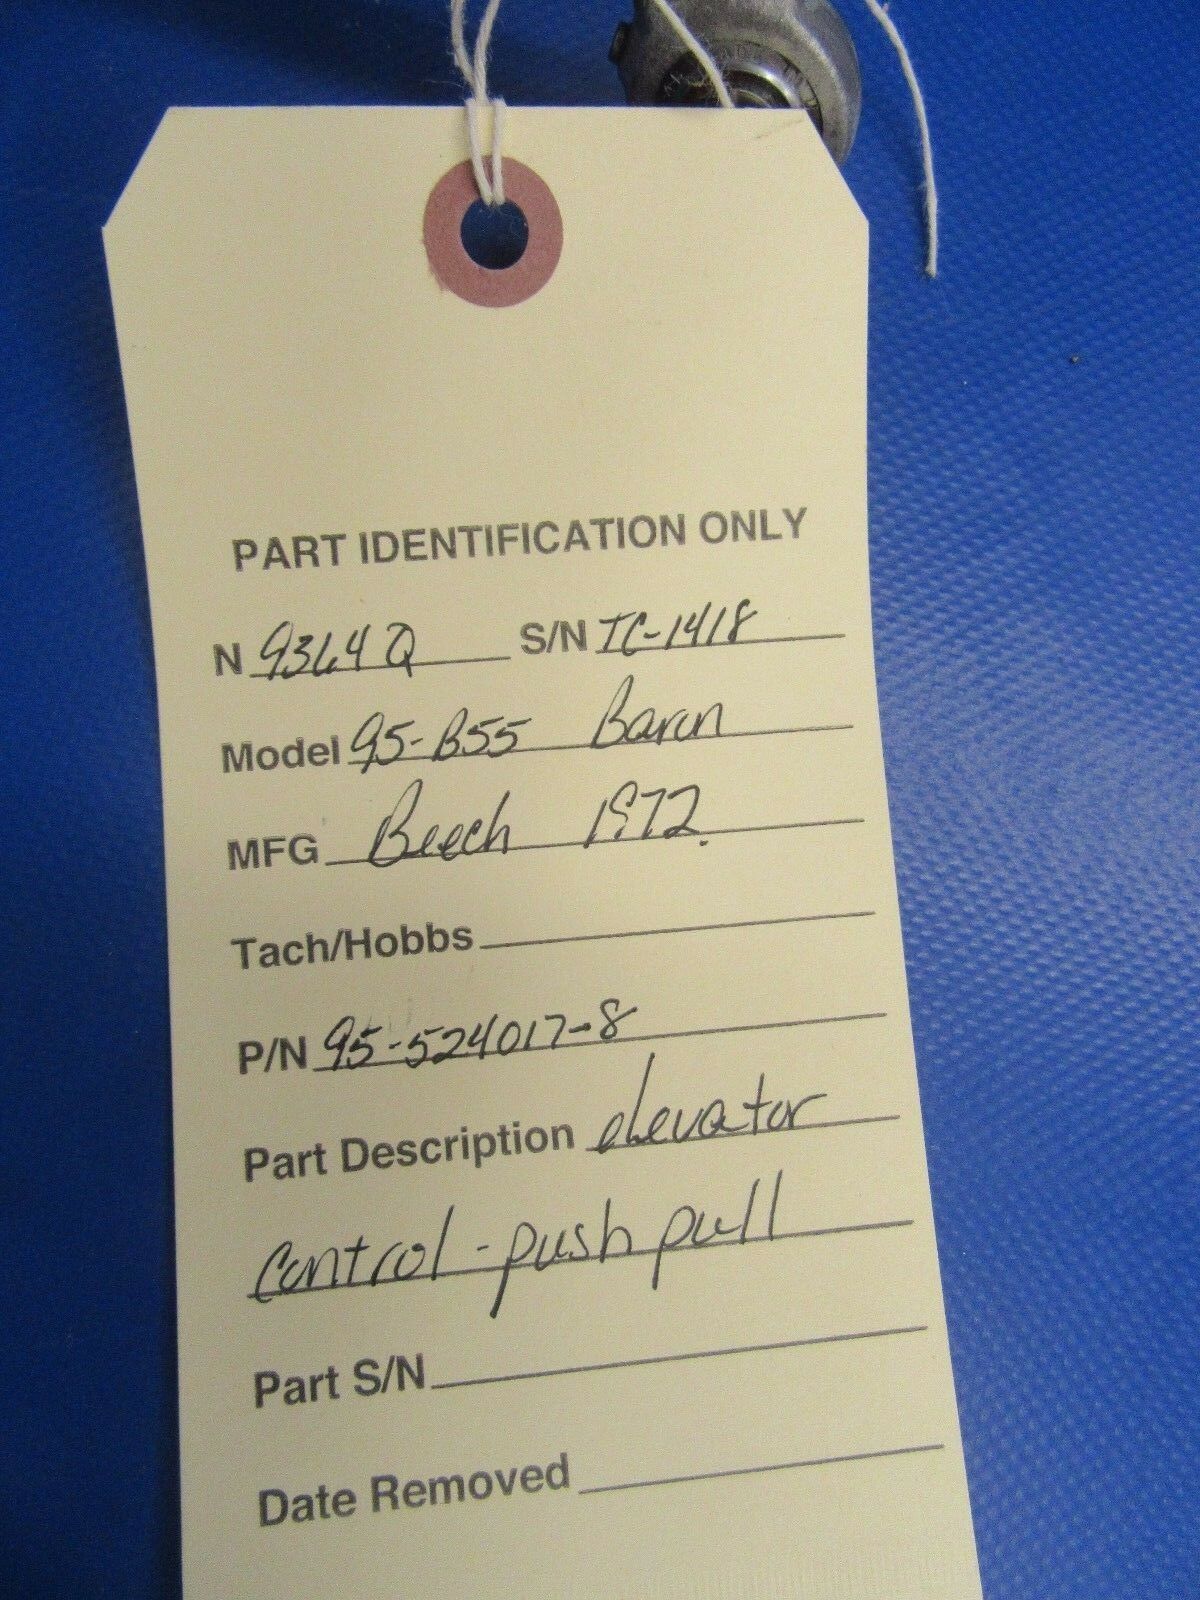 PART IDENTIFICATION ONLY
N 9364Q S/N TC-1418
Model 95-B55 Baron
MFG Beech 1972.
Tach/Hobbs
P/N 95-524017-8
Part Description elevator
control - push pull
Part S/N
Date Removed